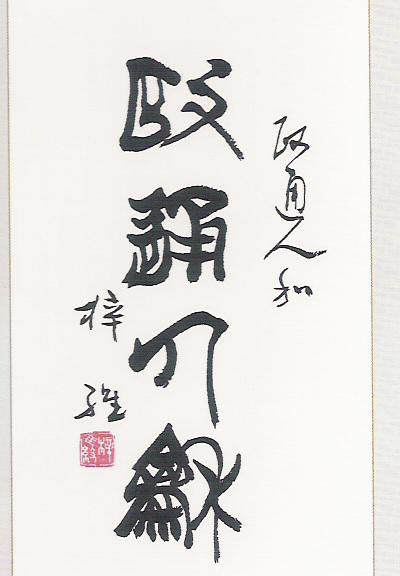 政通人和
政通人龢
梓维